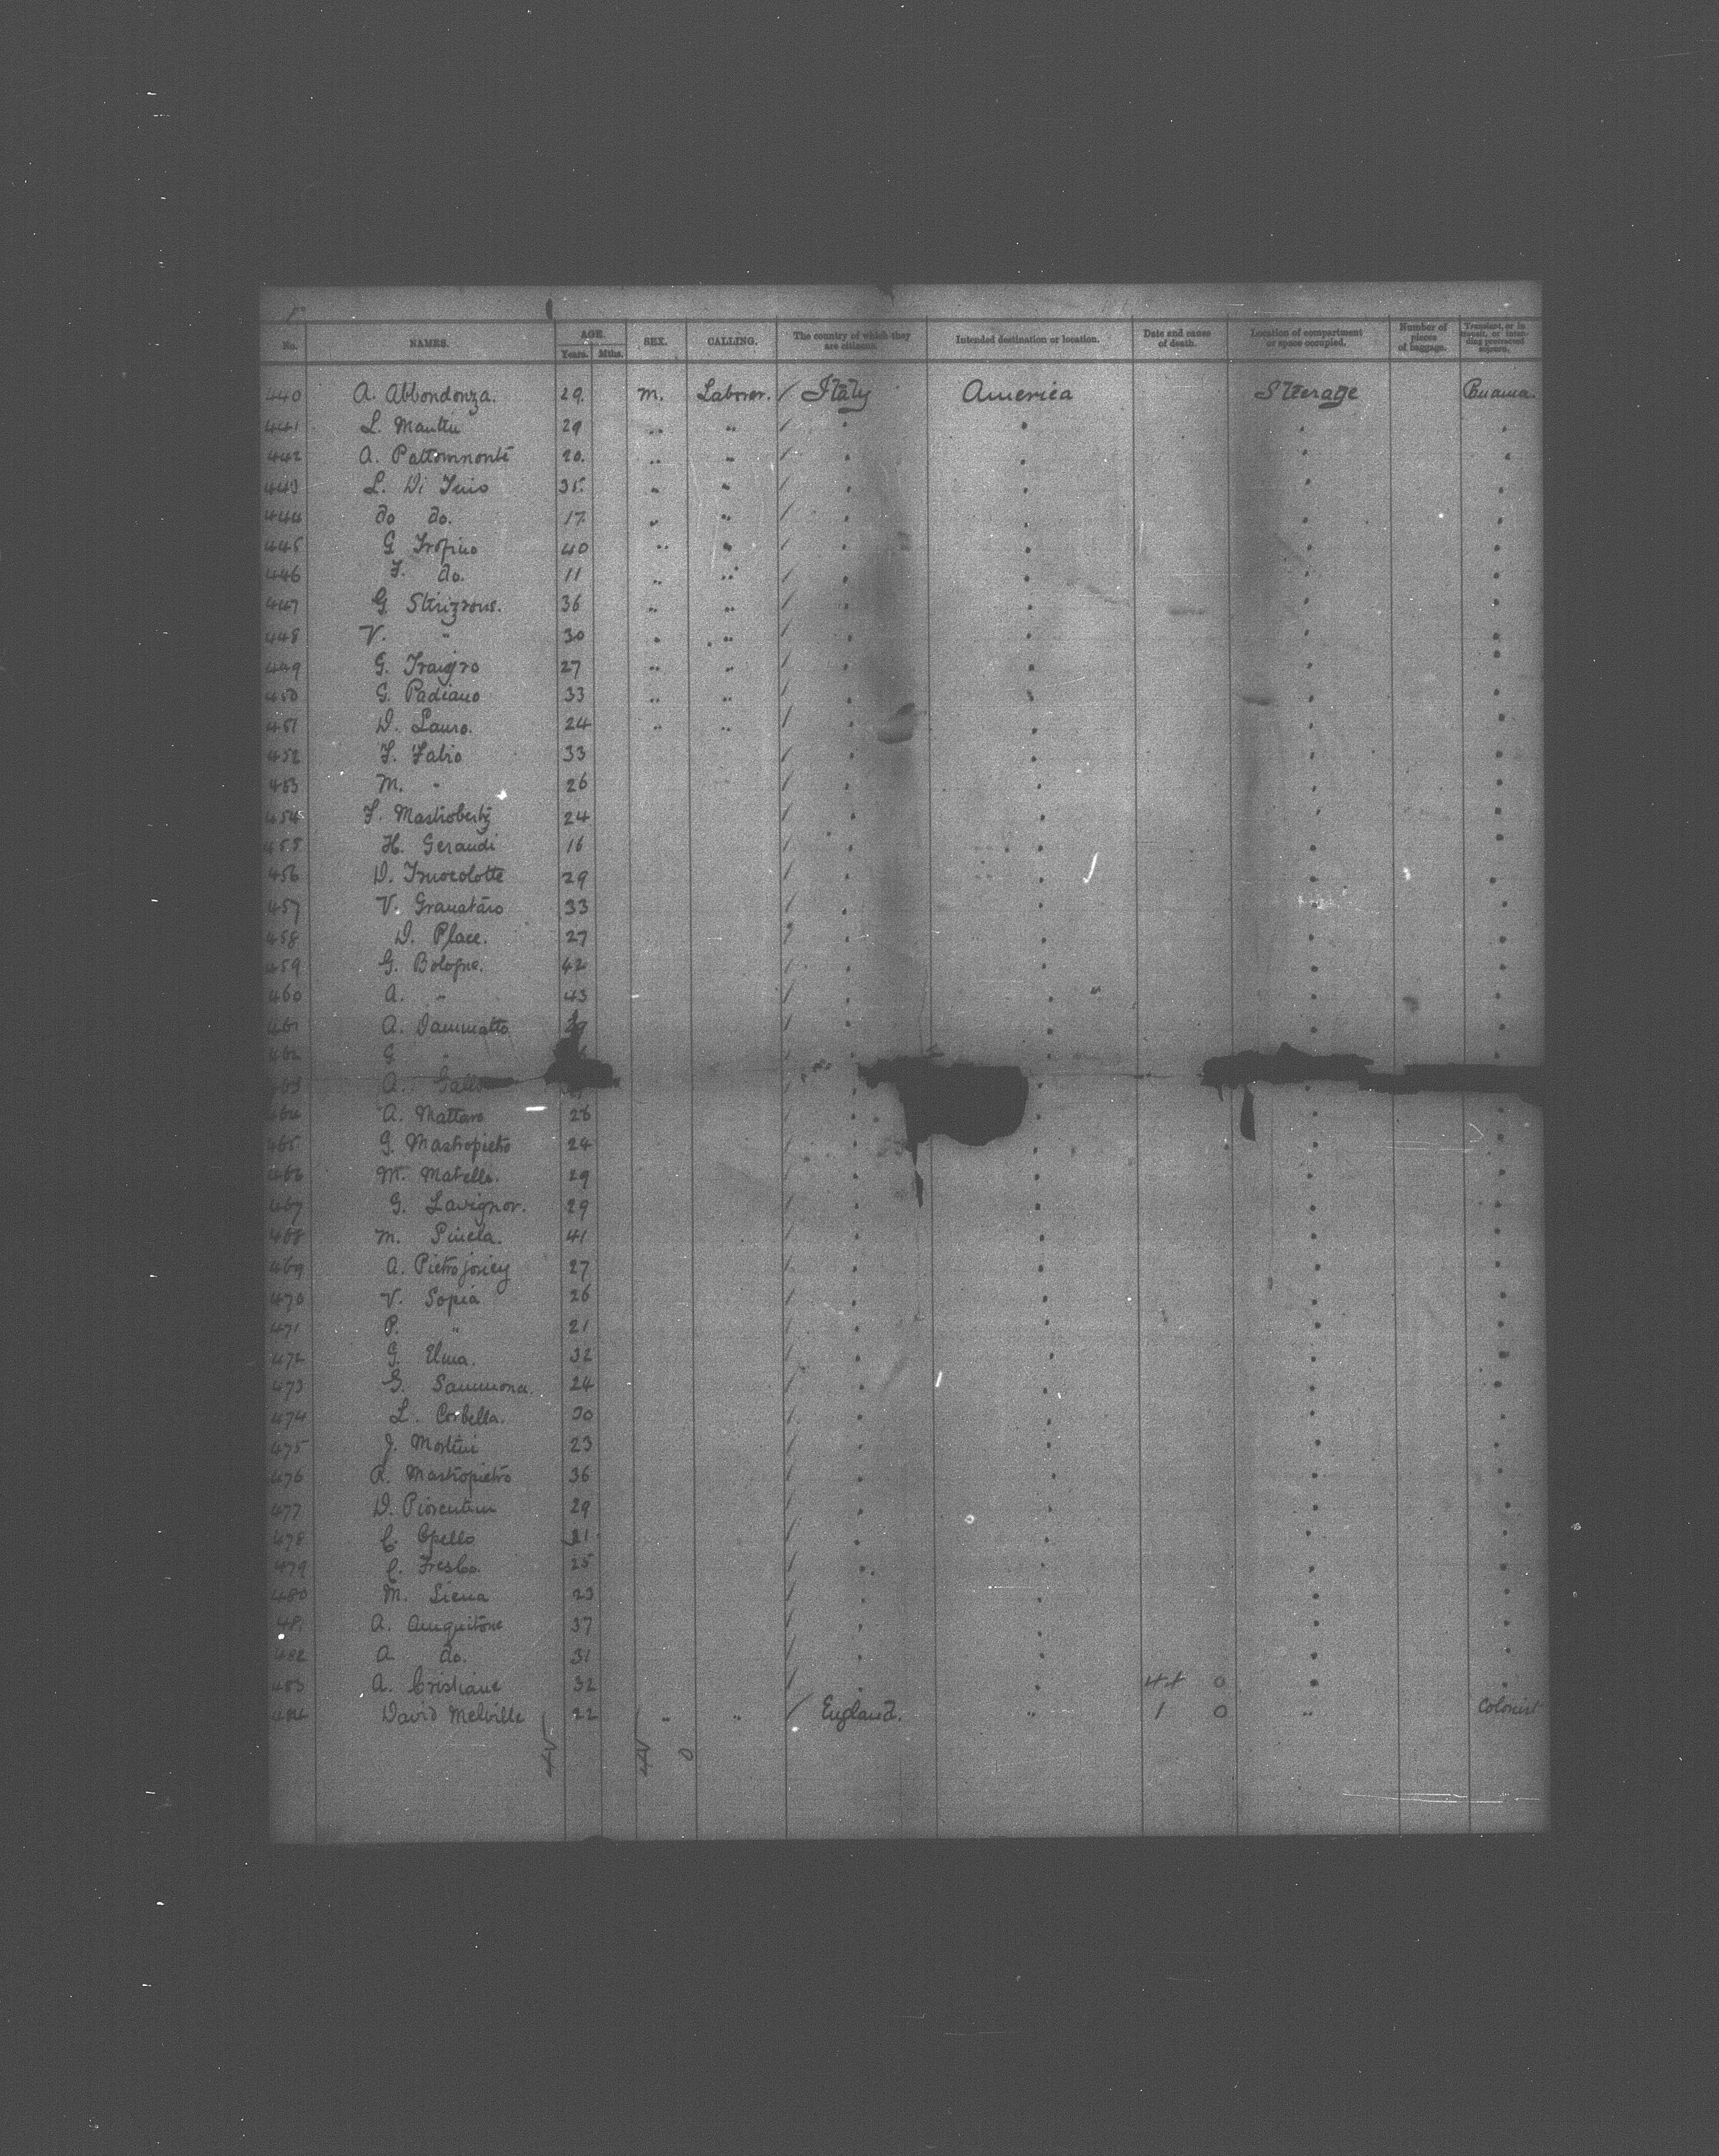 No. NAMES. AGE. Years. Mths. SEX. CALLING. The country of which they are citizens. Intended destination or location. Date and cause of death. Location of compartment or space occupied. Number of pieces of baggage. Transient, or in transit, or intending protracted sojourn.
440 A. Abbondonza. 29. M. Laborer. / Italy America Steerage
441 L. Mantin 29 " " /
442 A. 20. " " /
443 L. Di 35 " " /
444 do do. 17 " " /
445 G 40 " " /
446 F. do. 11 " " /
447 G 36 " " /
448 V. " 30 " " /
449 G. 27 " " /
450 G. Padiano 33 " " /
451 D. Lauro. 24 " " /
452 F. Fabio 33 /
453 M. " 26 /
454 F. Mastroberty 24 /
455 H. Geraudi 16 /
456 D. 29 /
457 V. Granataro 33 /
458 D. Place. 27 /
459 G. Bologna. 42 /
460 A. " 43 /
461 A. Dammatto 29 /
462 G "
463 A. Gallo
464 A. Mattaro 26 /
465 G. Mastropietro 24 /
466 M. Matello. 29 /
467 G. Lavignor. 29 /
468 M. Pinela. 41 /
469 A. 27 /
470 V. Sopia 26 /
471 P. " 21 /
472 G. Elma. 32 /
473 G. Sammona. 24 /
474 L. Corbella. 30 /
475 J. 23 /
476 R. Mastropietro 36 /
477 D. 29 /
478 C. 21 /
479 C. 25 /
480 M. Siena 23 /
481 A. 37 /
482 A do. 31 /
483 A. Cristiane 32 / 44 0
484 David Melville 22 " " / England. " 1 0 " Colonist